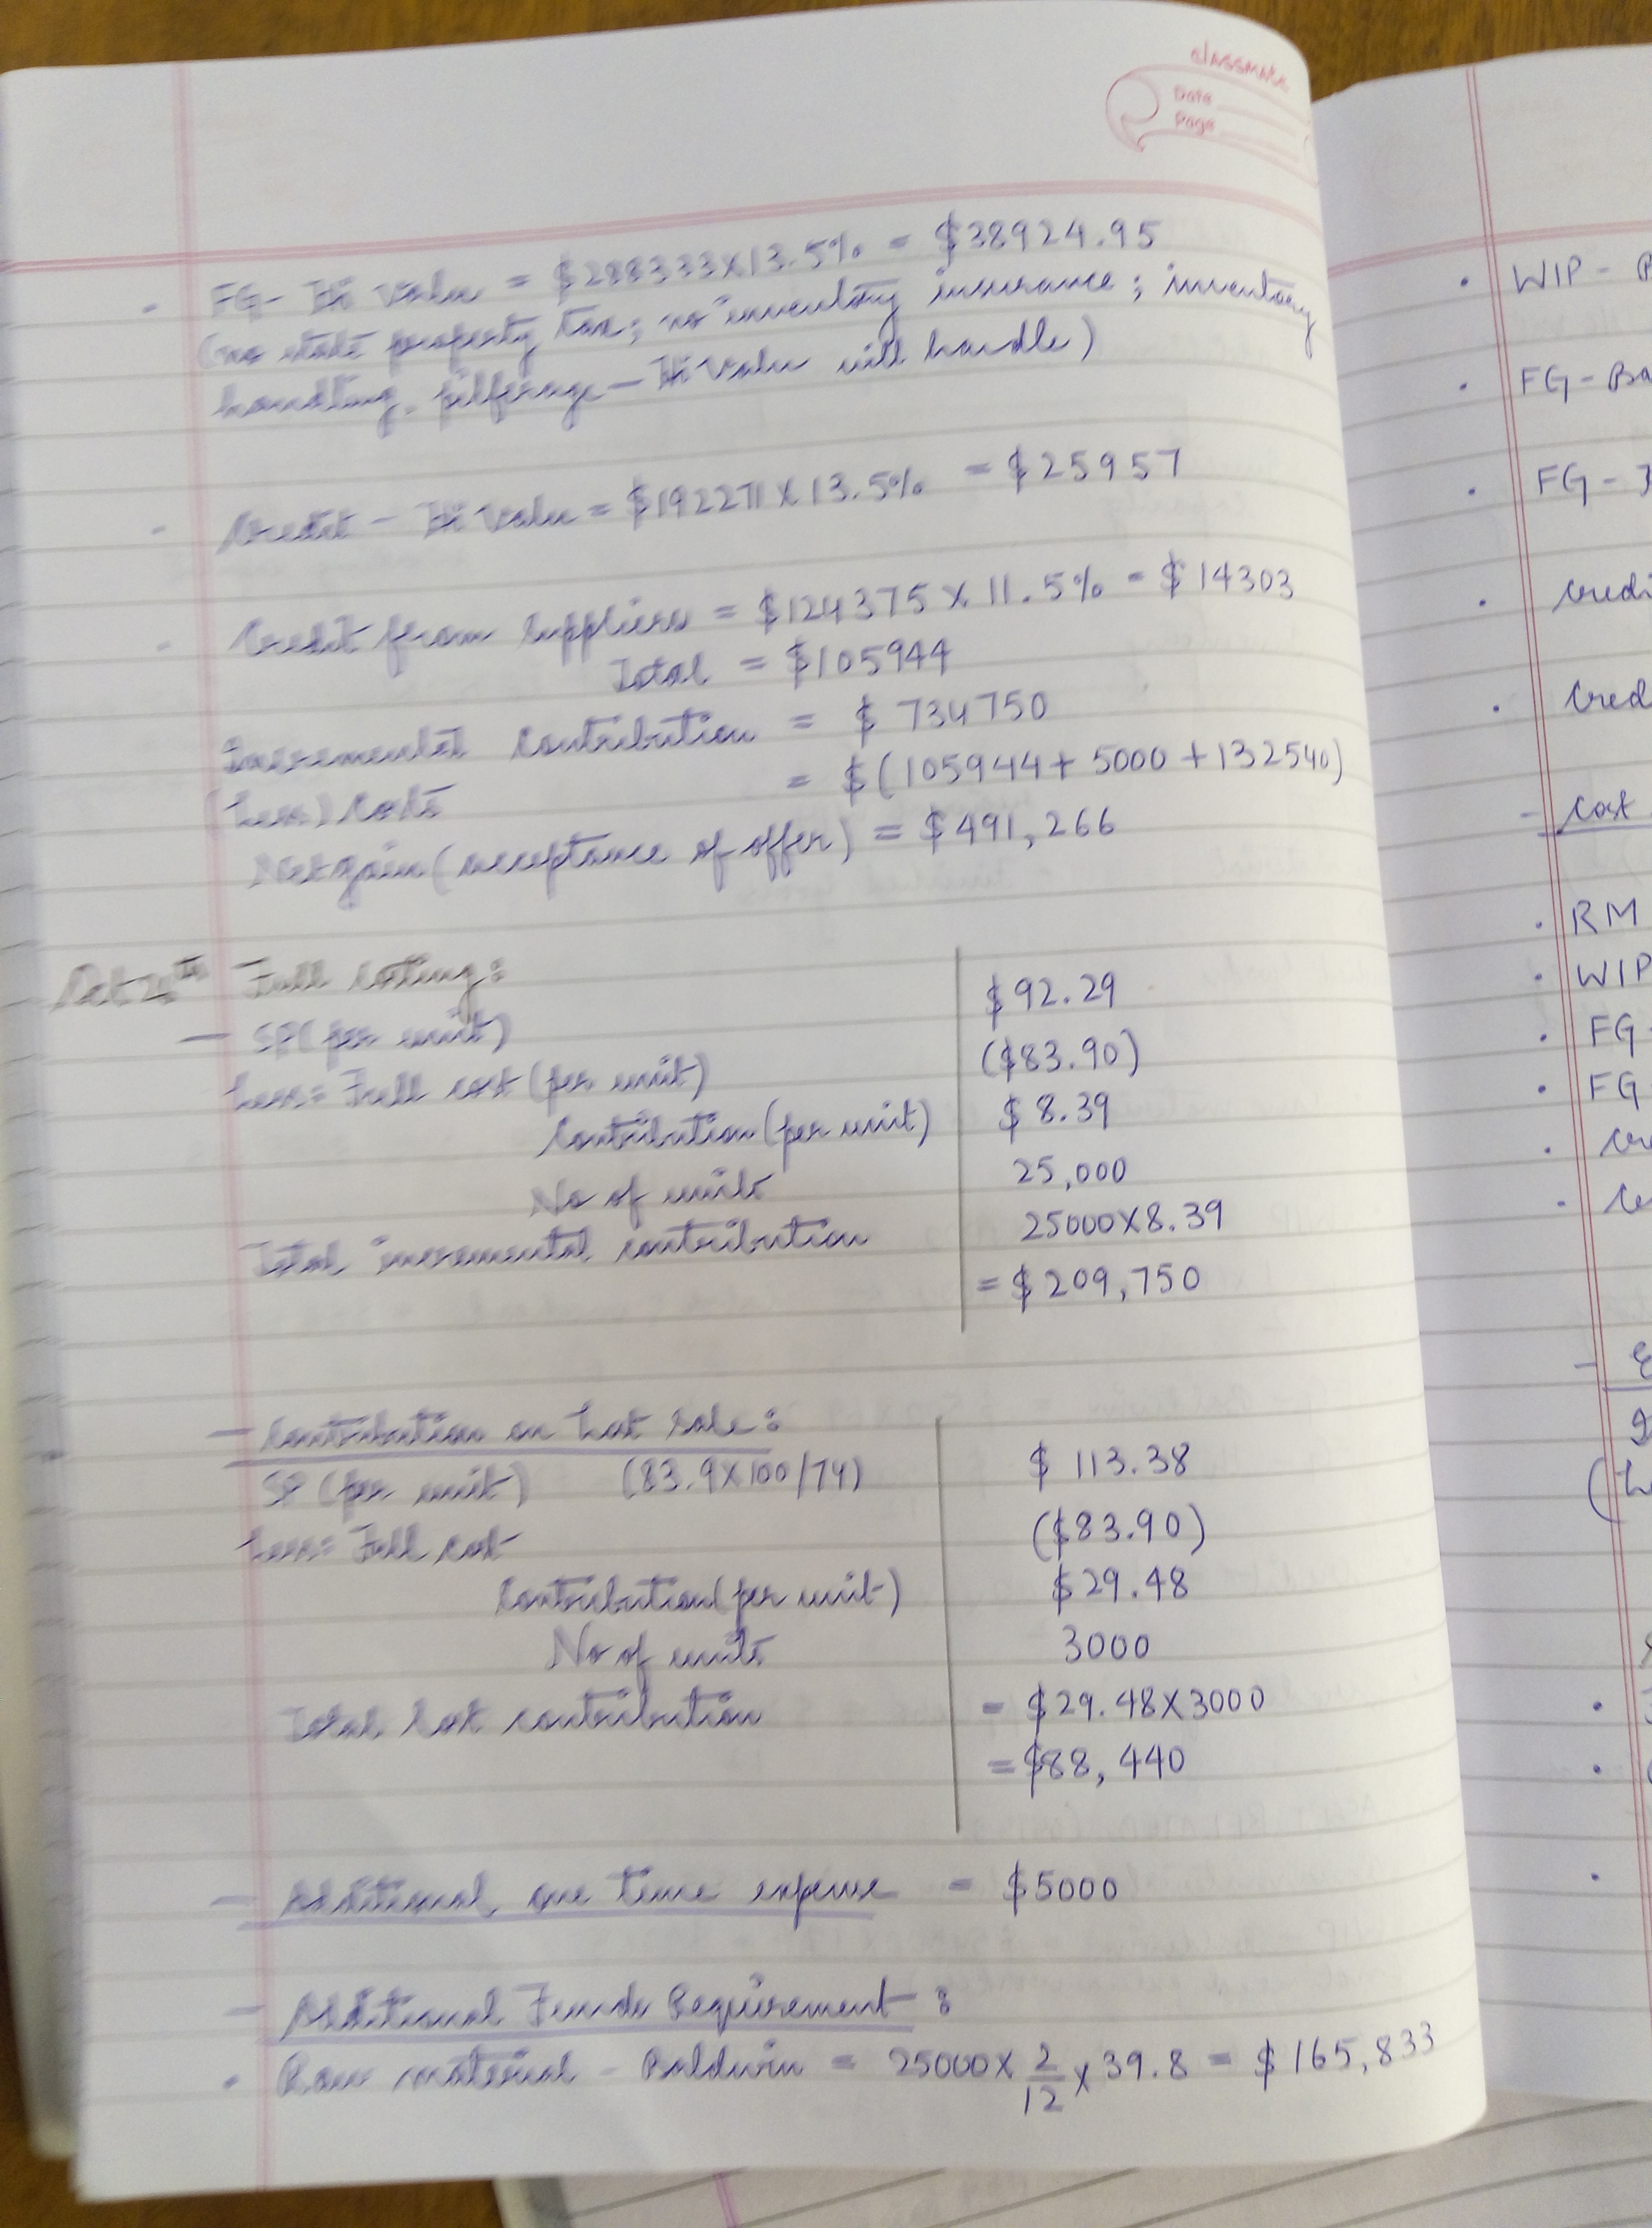 classmate
Date
Page
• FG - Hi Valu = $288333 x 13.5% = $38924.95
(no state property tax; no inventory insurance; inventory
handling, pilferage - Hi Valu will handle)
• Credit - Hi Valu = $192271 x 13.5% = $25957
• Credit from suppliers = $124375 x 11.5% = $14303
Total = $105944
Incremental contribution = $ 734750
(Less) Costs = $(105944 + 5000 + 132540)
Net gain (acceptance of offer) = $491,266
Full costing:
- SP (per unit) $92.29
Less: Full cost (per unit) ($83.90)
Contribution (per unit) $8.39
No of units 25,000
Total incremental contribution 25000 X 8.39
= $209,750
- Contribution on lost sale:
SP (per unit) (83.9 x 100/74) $113.38
Less: Full cost ($83.90)
Contribution (per unit) $29.48
No of units 3000
Total lost contribution = $29.48 X 3000
= $88,440
- Additional one time expense = $5000
- Additional Funds Requirement :
• Raw material - Baldwin = 25000 x 2/12 x 39.8 = $165,833
• WIP -
• FG -
• FG -
•
•
- Cost
• RM
• WIP
• FG -
• FG -
•
•